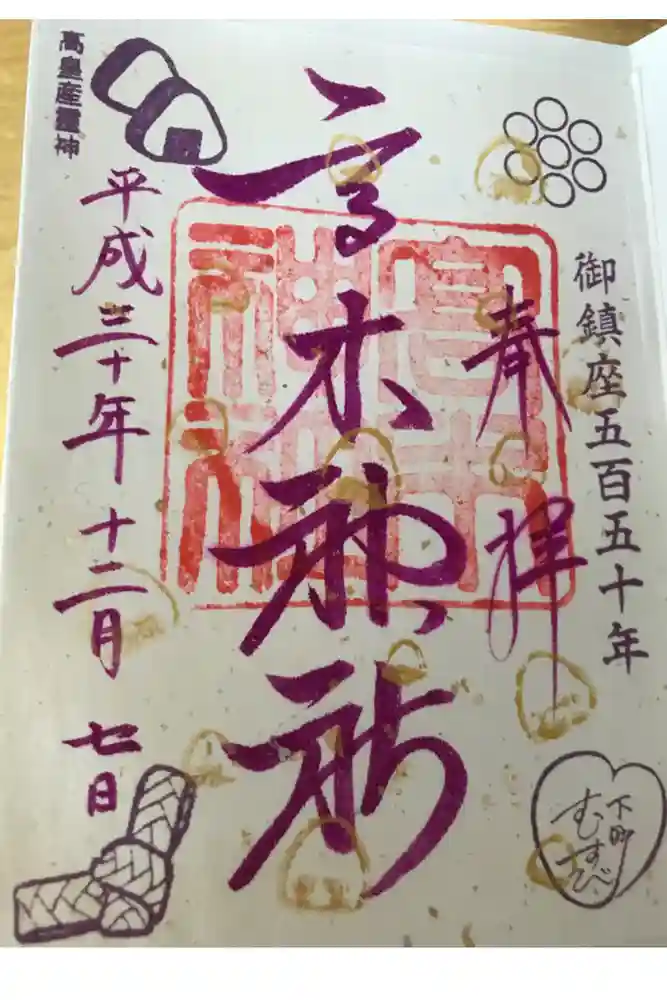 御鎮座五百五十年
奉拝
高木神社
高木神社
平成三十年十二月七日
高皇産霊神
下町
むすび